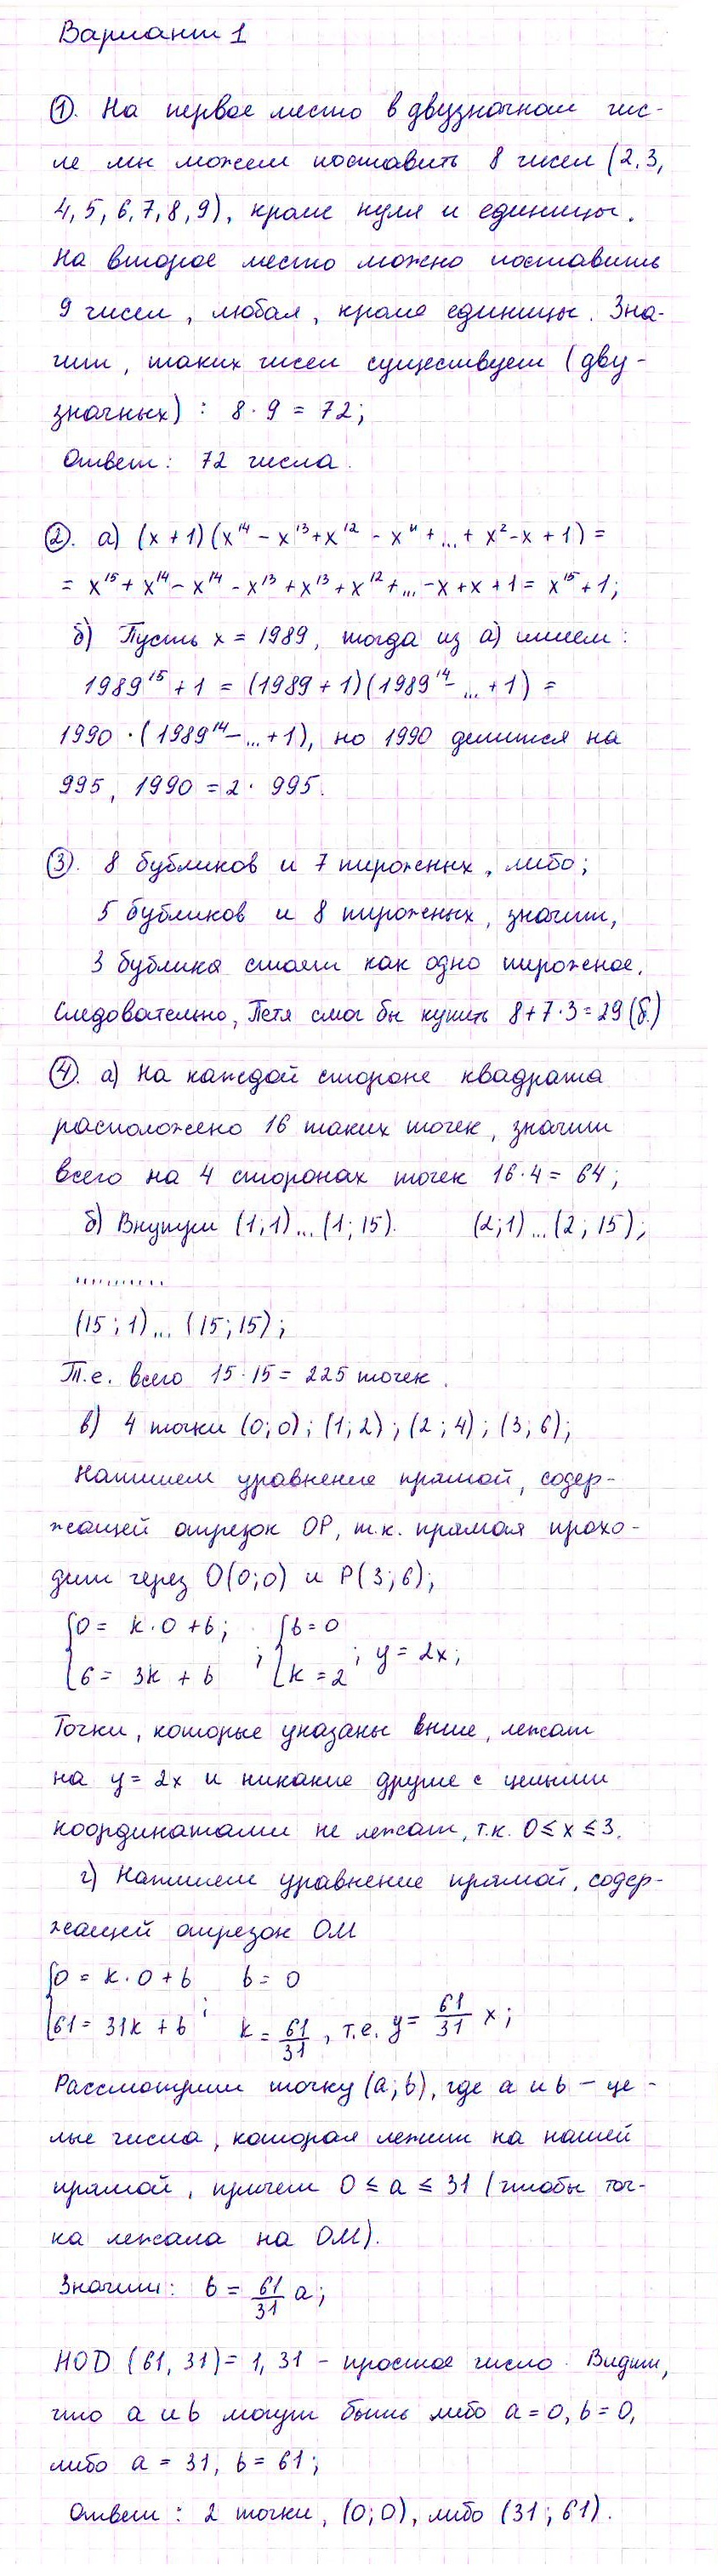 Вариант 1
①. На первое место в двузначном чис-
ле мы можем поставить 8 чисел (2,3,
4,5,6,7,8,9), кроме нуля и единицы.
На второе место можно поставить
9 чисел, любая, кроме единицы. Зна-
чит, таких чисел существует (дву-
значных) : 8·9 = 72;
Ответ: 72 числа.
②. а) (x+1)(x¹⁴ - x¹³ + x¹² - x¹¹ + ... + x² - x + 1) =
= x¹⁵ + x¹⁴ - x¹⁴ - x¹³ + x¹³ + x¹² + ... - x + x + 1 = x¹⁵ + 1;
б) Пусть x = 1989, тогда из а) имеем:
1989¹⁵ + 1 = (1989 + 1)(1989¹⁴ - ... + 1) =
1990 · (1989¹⁴ - ... + 1), но 1990 делится на
995, 1990 = 2 · 995.
③. 8 бубликов и 7 пироженых, либо;
5 бубликов и 8 пироженых, значит,
3 бублика стоят как одно пироженое.
Следовательно, Петя смог бы купить 8+7·3=29 (б.)
④. а) На каждой стороне квадрата
расположено 16 таких точек, значит
всего на 4 сторонах точек 16·4 = 64;
б) Внутри (1;1)...(1;15). (2;1)...(2;15);
..........
(15;1)...(15;15);
Т.е. всего 15·15 = 225 точек.
в) 4 точки (0;0); (1;2); (2;4); (3;6);
Напишем уравнение прямой, содер-
жащей отрезок OP, т.к. прямая прохо-
дит через O(0;0) и P(3;6);
{0 = k·0 + b; {b = 0
{6 = 3k + b ; {k = 2 ; y = 2x;
Точки, которые указаны выше, лежат
на y = 2x и никакие другие с целыми
координатами не лежат, т.к. 0 ≤ x ≤ 3.
г) Напишем уравнение прямой, содер-
жащей отрезок OM
{0 = k·0 + b b = 0
{61 = 31k + b ; k = 61/31, т.е. y = 61/31 x;
Рассмотрим точку (a;b), где a и b - це-
лые числа, которая лежит на нашей
прямой, причем 0 ≤ a ≤ 31 (чтобы точ-
ка лежала на OM).
Значит: b = 61/31 a;
НОD (61, 31) = 1, 31 - простое число. Видим,
что a и b могут быть либо a = 0, b = 0,
либо a = 31, b = 61;
Ответ: 2 точки, (0;0), либо (31;61).